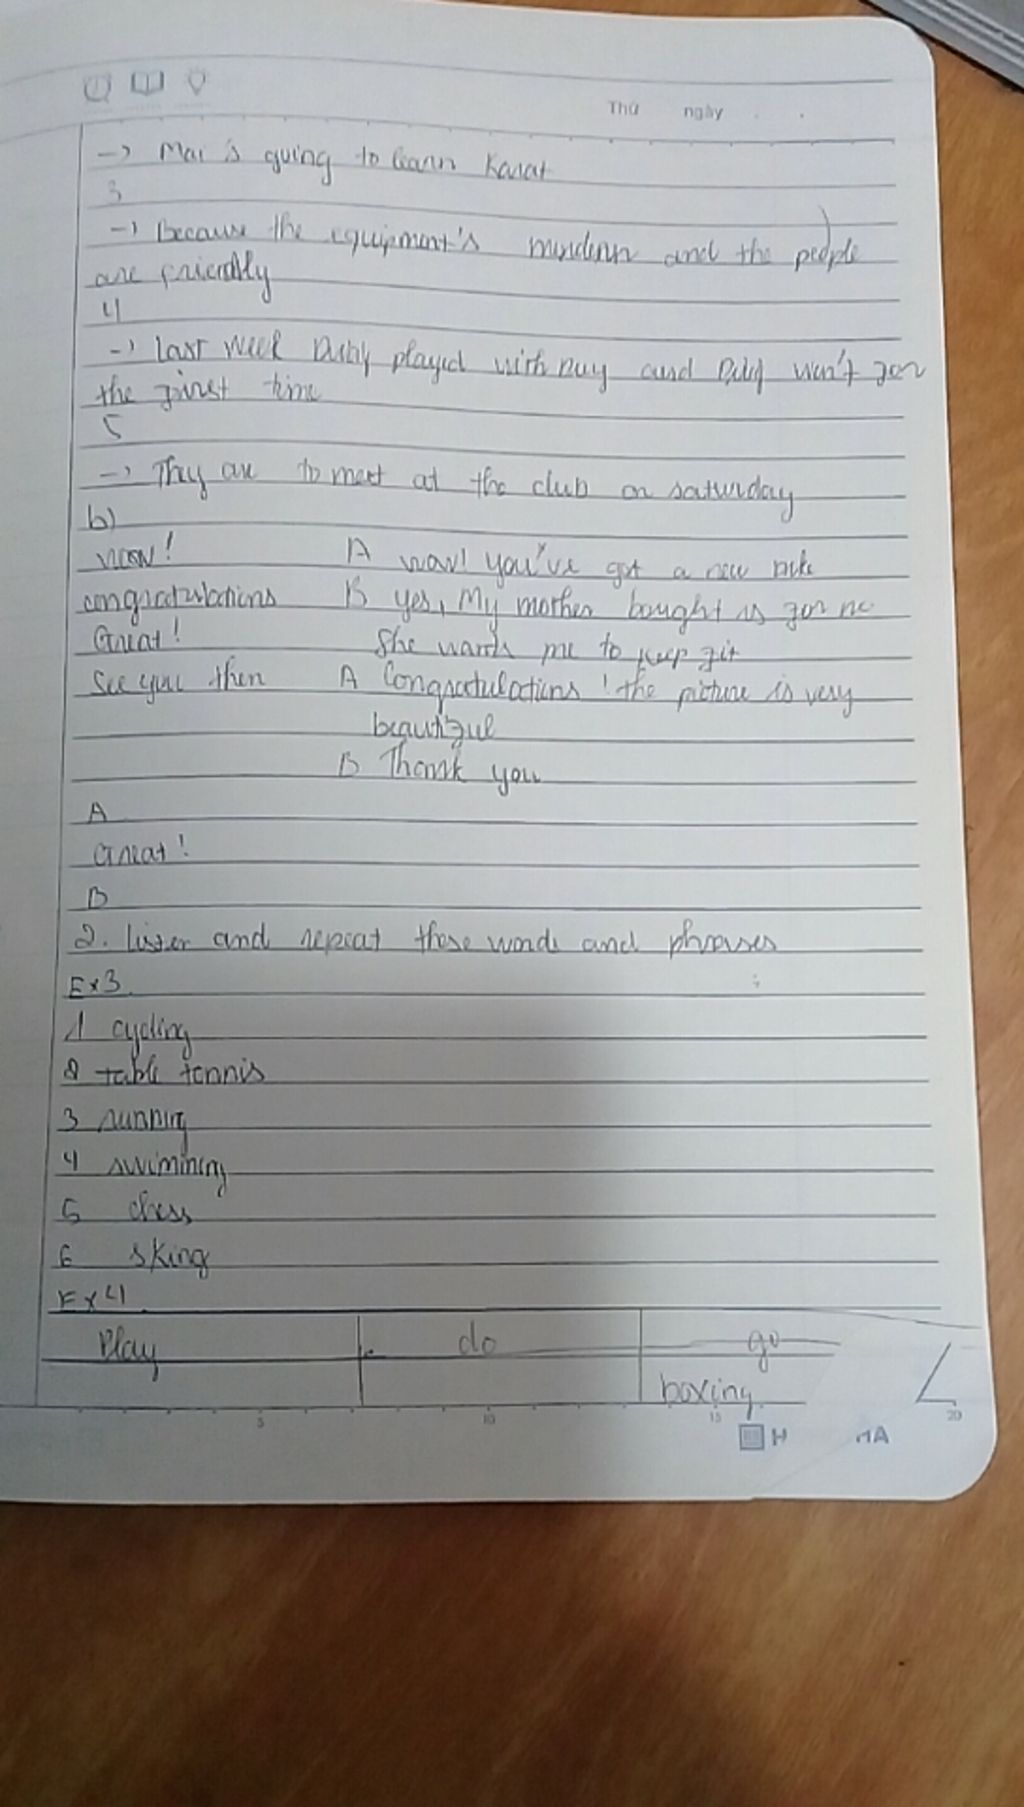 Thứ ngày
-> Mai is going to learn Karat
3
-> Because the equipment's and the people
are friendly
4
-> last week Duy played with Duy and Duy won't for
the first time
5
-> They are to meet at the club on saturday
b)
wow! A wow! you've got a new
congratulations B yes, My mother bought is for me
Great! She wants me to keep fit
See you then A Congratulations! the picture is very
beautiful
B Thank you
A
Great!
B
2. listen and repeat these words and phrases
Ex3
1 cycling
2 table tennis
3 running
4 swimining
5 chess
6 sking
Ex4
Play do go
boxing
5 10 15 20